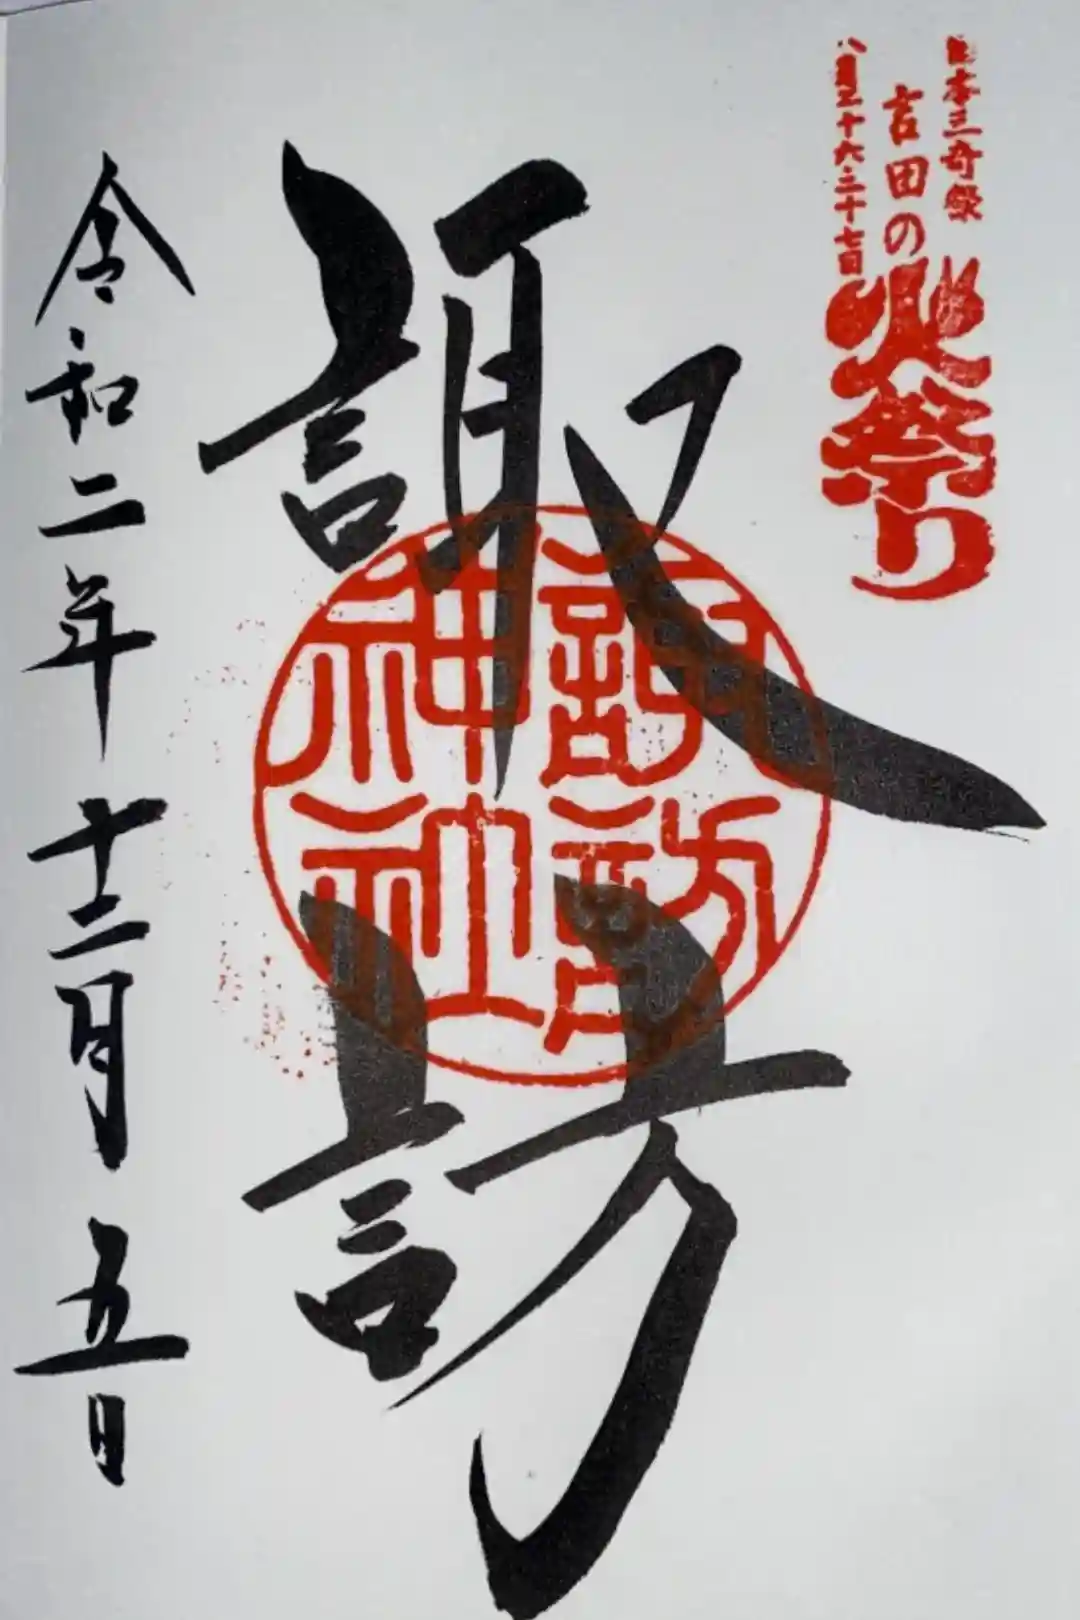 日本三奇祭
吉田の火祭り
八月二十六・二十七日
諏訪
諏訪
神社
令和二年十二月五日